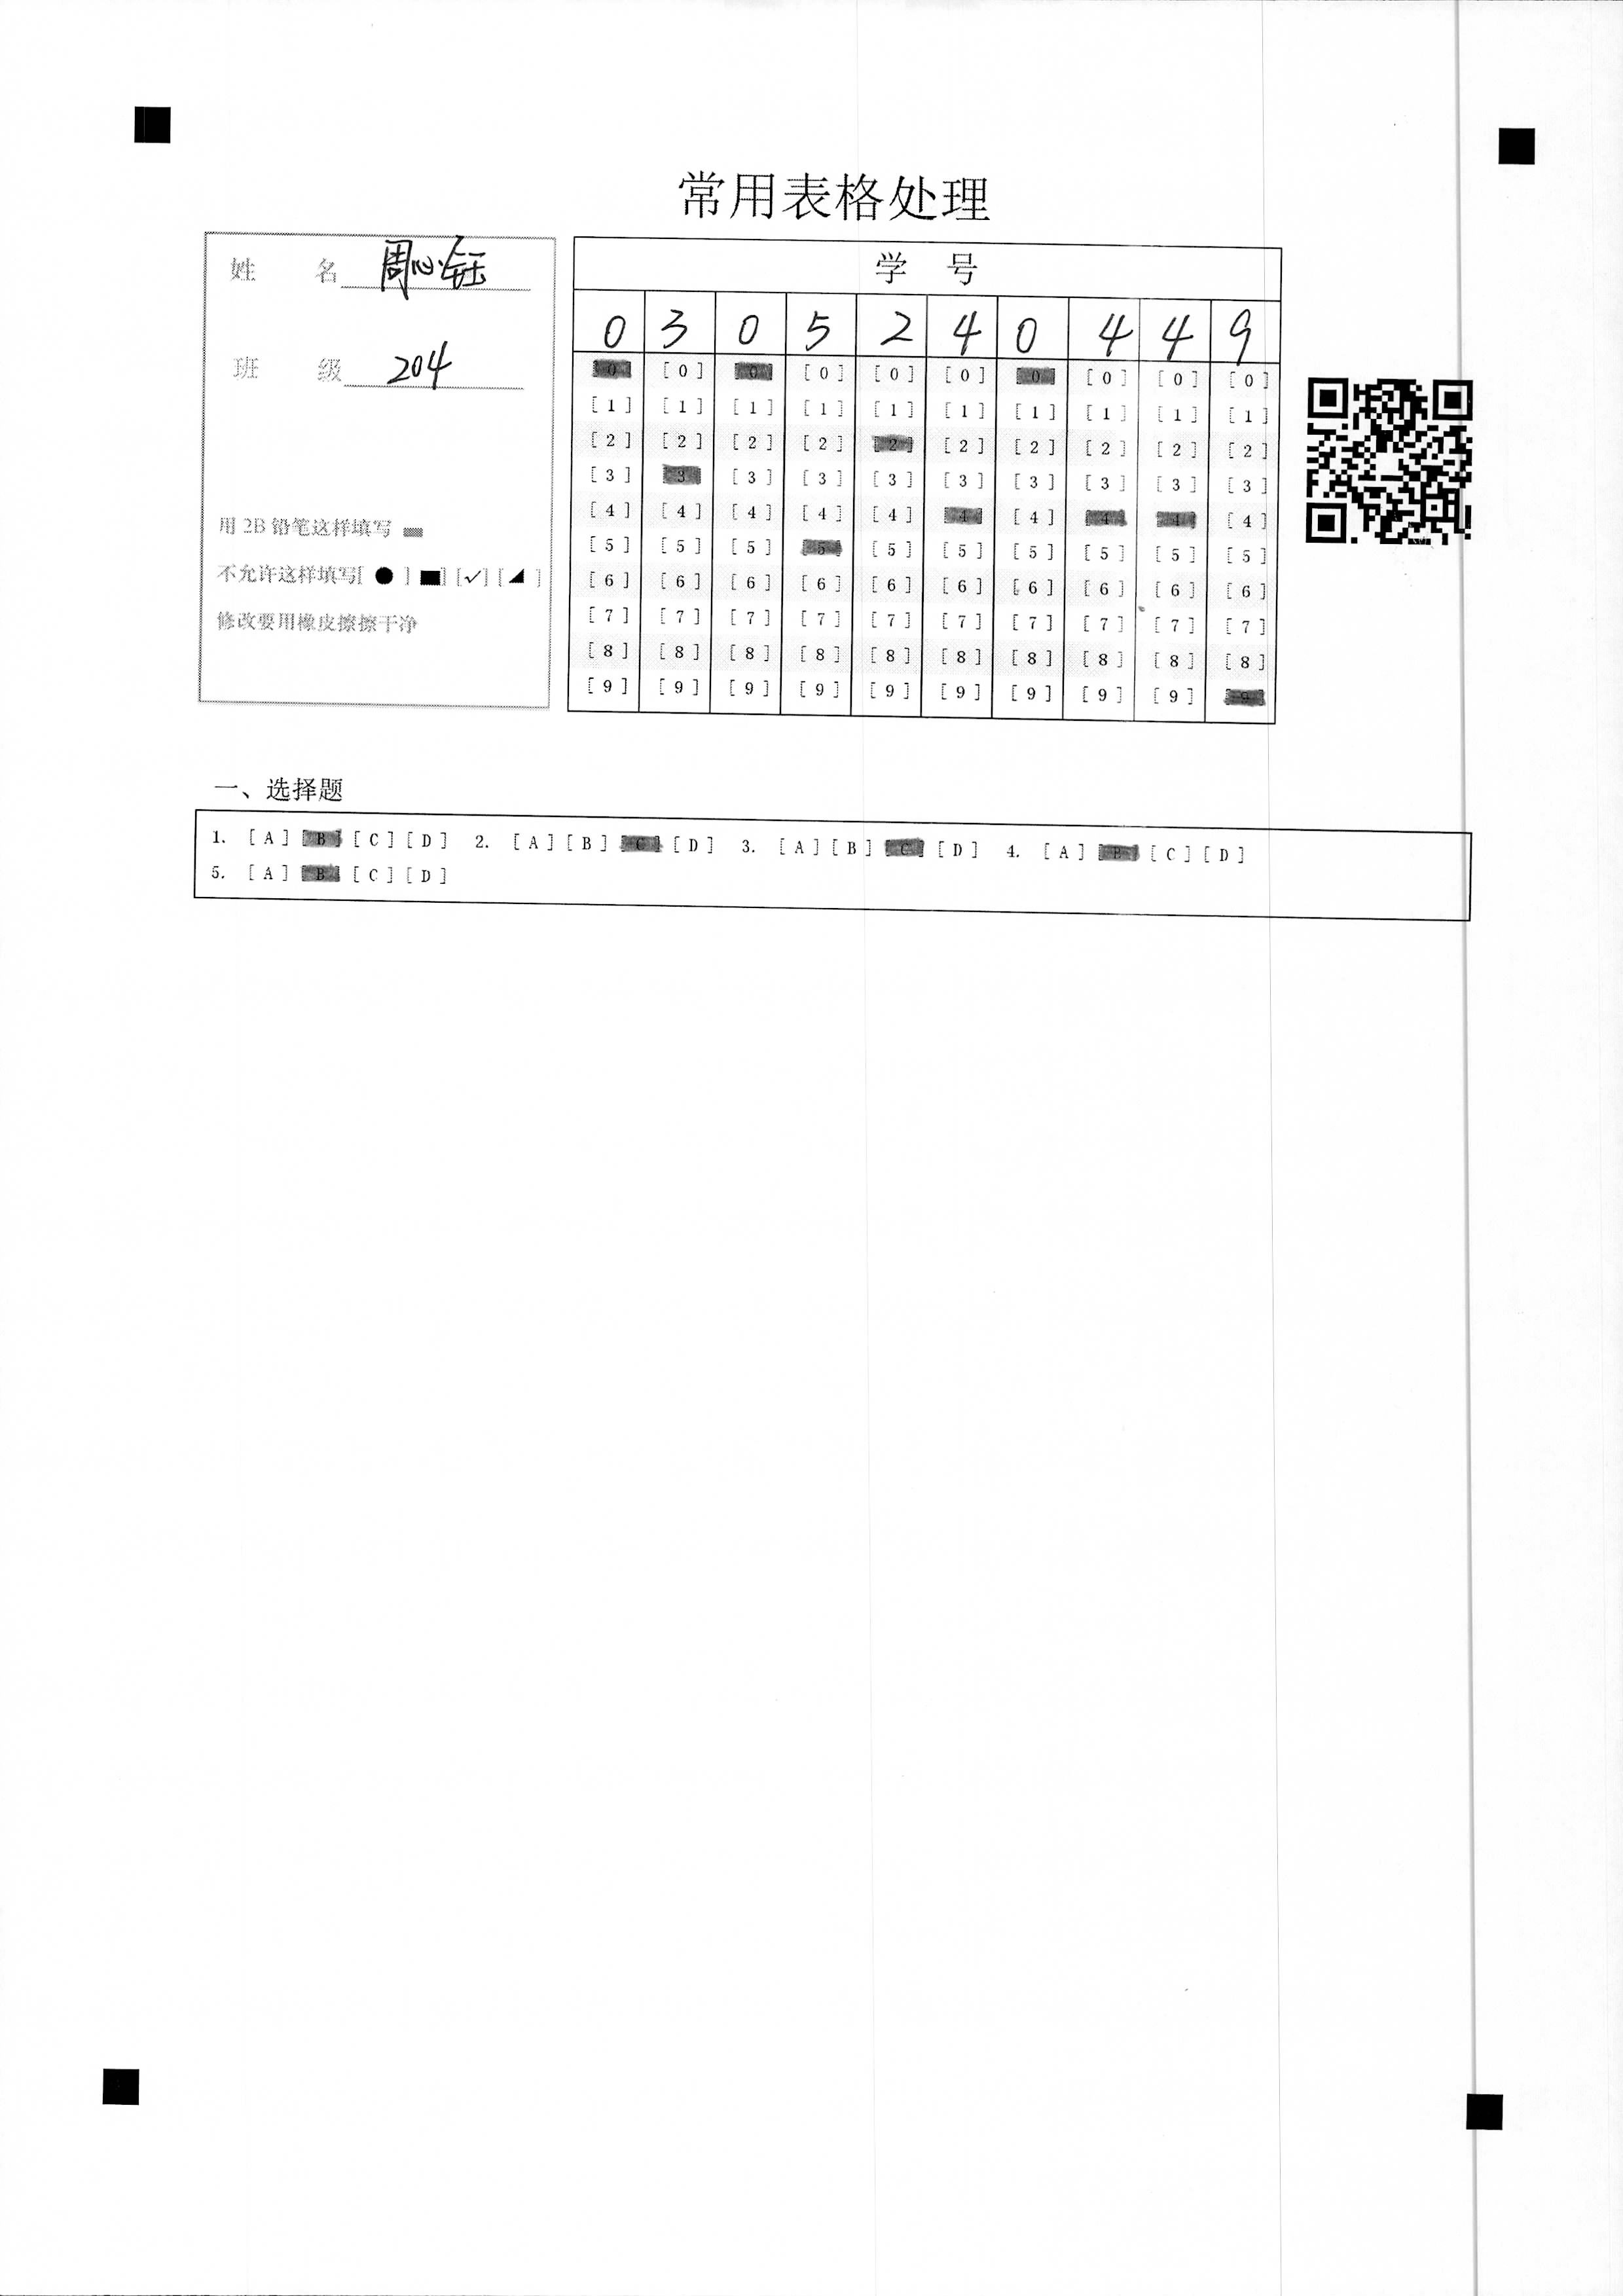 常用表格处理
姓 名 周心钰
班 级 204
用 2B 铅笔这样填写
不允许这样填写[ ● ] ■] [✓] [◢ ]
修改要用橡皮擦擦干净
学 号
0 3 0 5 2 4 0 4 4 9
[0] [0] [0] [0] [0] [0] [0] [0] [0] [0]
[1] [1] [1] [1] [1] [1] [1] [1] [1] [1]
[2] [2] [2] [2] [2] [2] [2] [2] [2] [2]
[3] [3] [3] [3] [3] [3] [3] [3] [3] [3]
[4] [4] [4] [4] [4] [4] [4] [4] [4] [4]
[5] [5] [5] [5] [5] [5] [5] [5] [5] [5]
[6] [6] [6] [6] [6] [6] [6] [6] [6] [6]
[7] [7] [7] [7] [7] [7] [7] [7] [7] [7]
[8] [8] [8] [8] [8] [8] [8] [8] [8] [8]
[9] [9] [9] [9] [9] [9] [9] [9] [9] [9]
一、选择题
1. [A] [B] [C] [D] 2. [A] [B] [C] [D] 3. [A] [B] [C] [D] 4. [A] [B] [C] [D]
5. [A] [B] [C] [D]